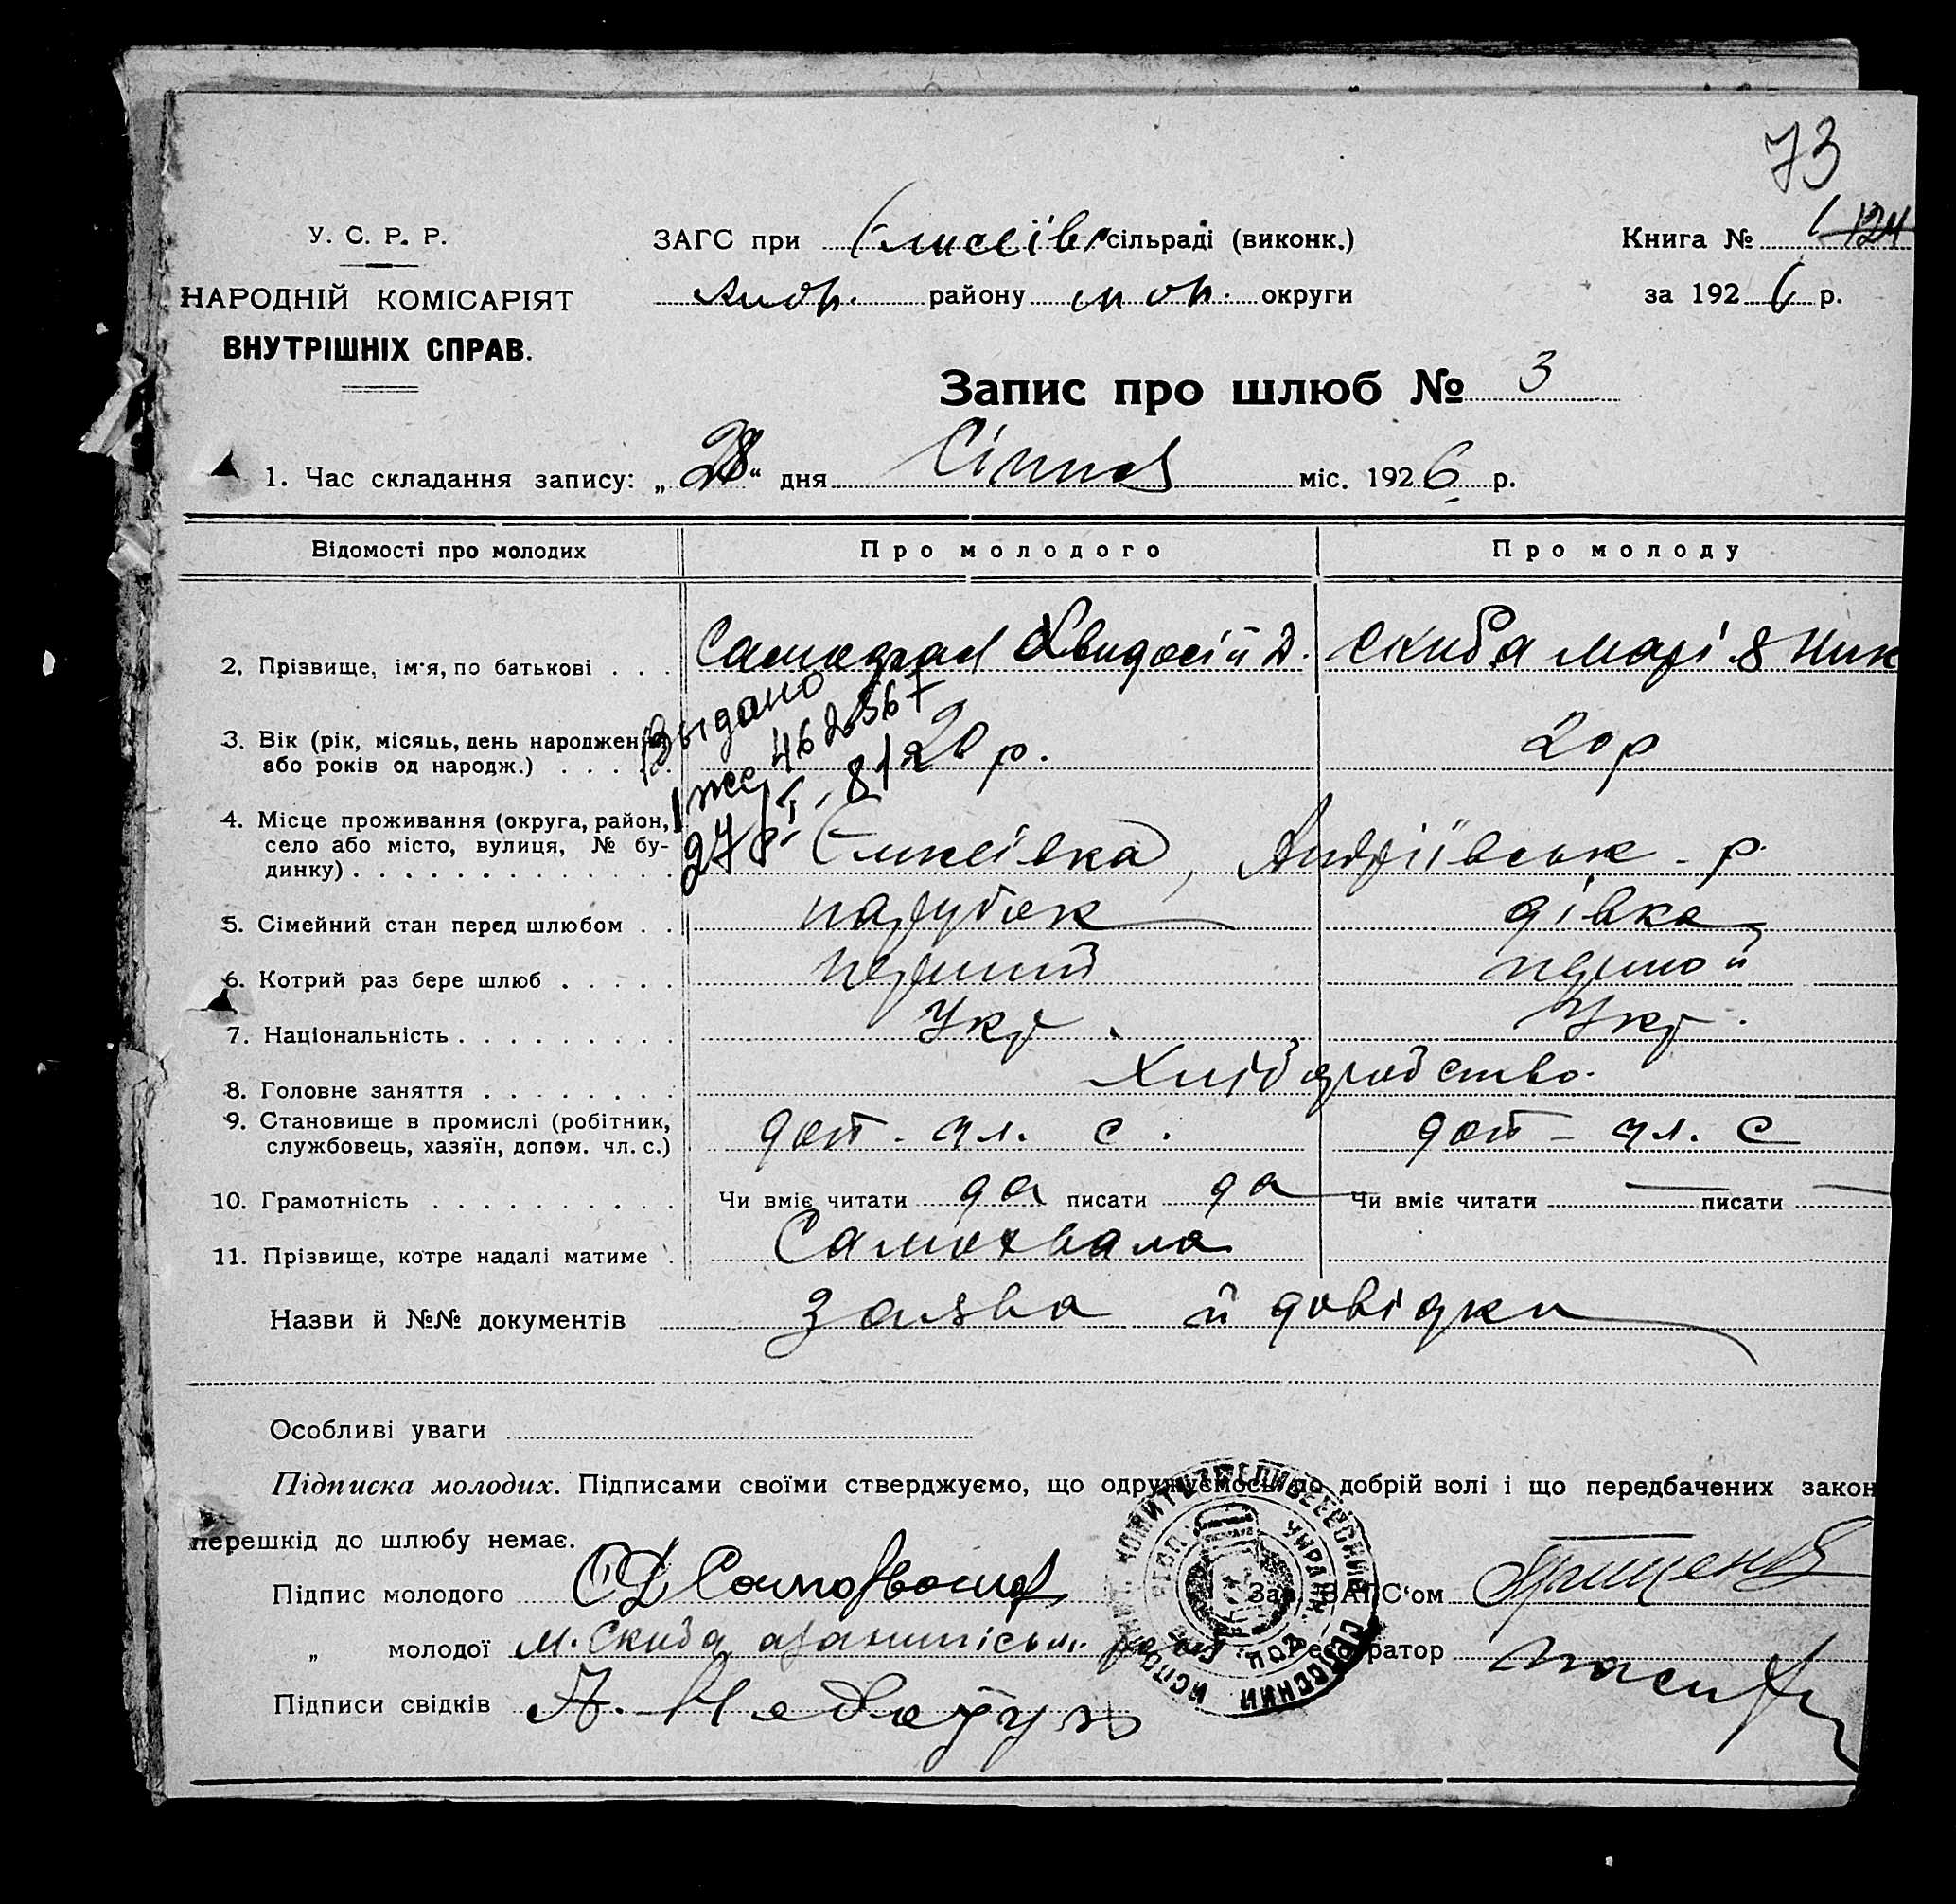 73
У. С. Р. Р.
НАРОДНІЙ КОМІСАРІЯТ
ВНУТРІШНІХ СПРАВ.
ЗАГС при Єлисеївс сільраді (виконк.)
Андр. району округи
Книга № 1 124
за 1926 р.
Запис про шлюб № 3
1. Час складання запису: „28“ дня Січня міс. 1926 р.
Відомості про молодих Про молодого Про молоду
2. Прізвище, ім'я, по батькові . . . Самохвал Д. Скиба Марія Ник
Выдано
3. Вік (рік, місяць, день народження або років од народж.) . . . . . 20 р. 20 р
4. Місце проживання (округа, район, село або місто, вулиця, № бу-
динку) . . . . . . . . . . . . . . Єлисеївка, Андріївськ - р
5. Сімейний стан перед шлюбом . . парубок дівка
6. Котрий раз бере шлюб . . . . . перший першой
7. Національність . . . . . . . . . . Укр. Укр.
8. Головне заняття . . . . . . . . Хліборобство.
9. Становище в промислі (робітник,
службовець, хазяїн, допом. чл. с.) доп. чл. с. доп - чл. с
10. Грамотність . . . . . . . . . . . Чи вміє читати да писати да Чи вміє читати — писати —
11. Прізвище, котре надалі матиме . Самохвала
Назви й №№ документів заява й довідки
Особливі уваги
Підписка молодих. Підписами своїми стверджуємо, що одружуємось по добрій волі і що передбачених закон
перешкід до шлюбу немає.
Підпис молодого Самохвал Зав. ЗАГС‘ом
„ молодої М. Скиба Реєстратор
Підписи свідків А.